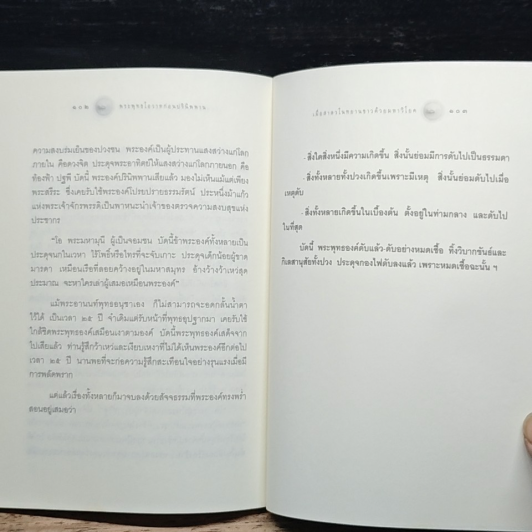 ๒๐๒ พระพุทธโอวาทก่อนปรินิพพาน
ความสงบร่มเย็นของปวงชน พระองค์เป็นผู้ประทานแสงสว่างแก่โลก
ภายใน คือดวงจิต ประดุจพระอาทิตย์ให้แสงสว่างแก่โลกภายนอก คือ
ท้องฟ้า ปฐพี บัดนี้ พระองค์ปรินิพพานเสียแล้ว มองไม่เห็นแม้แต่เพียง
พระสรีระ ซึ่งเคยรับใช้พระองค์โปรยปรายธรรมรัตน์ ประหนึ่งม้าแก้ว
แห่งพระเจ้าจักรพรรดิเป็นพาหนะนำเจ้าของตรวจความสงบสุขแห่ง
ประชากร
"โอ พระมหามุนี ผู้เป็นจอมชน บัดนี้ข้าพระองค์ทั้งหลายเป็น
ประดุจนกในเวหา ไร้โพธิ์หรือไทรที่จะจับเกาะ ประดุจเด็กน้อยผู้ขาด
มารดา เหมือนเรือที่ลอยคว้างอยู่ในมหาสมุทร อ้างว้างว้าเหว่สุด
ประมาณ จะหาใครเล่าผู้เสมอเหมือนพระองค์"
แม้พระอานนท์พุทธอนุชาเอง ก็ไม่สามารถจะอดกลั้นน้ำตา
ไว้ได้ เป็นเวลา ๒๕ ปี จำเดิมแต่รับหน้าที่พุทธอุปฐากมา เคยรับใช้
ใกล้ชิดพระพุทธองค์เสมือนเงาตามองค์ บัดนี้พระพุทธองค์เสด็จจาก
ไปเสียแล้ว ท่านรู้สึกว้าเหว่และเงียบเหงาที่ไม่ได้เห็นพระองค์อีกต่อไป
เวลา ๒๕ ปี นานพอที่จะก่อความรู้สึกสะเทือนใจอย่างรุนแรงเมื่อมี
การพลัดพราก
แต่แล้วเรื่องทั้งหลายก็มาจบลงด้วยสัจจธรรมที่พระองค์ทรงพร่ำ
สอนอยู่เสมอว่า
๒๐๓
- สิ่งใดสิ่งหนึ่งมีความเกิดขึ้น สิ่งนั้นย่อมมีการดับไปเป็นธรรมดา
- สิ่งทั้งหลายทั้งปวงเกิดขึ้นเพราะมีเหตุ สิ่งนั้นย่อมดับไปเมื่อ
เหตุดับ
- สิ่งทั้งหลายเกิดขึ้นในเบื้องต้น ตั้งอยู่ในท่ามกลาง และดับไป
ในที่สุด
บัดนี้ พระพุทธองค์ดับแล้ว-ดับอย่างหมดเชื้อ ทิ้งวิบากขันธ์และ
กิเลสานุสัยทั้งปวง ประดุจกองไฟดับลงแล้ว เพราะหมดเชื้อฉะนั้น ฯ